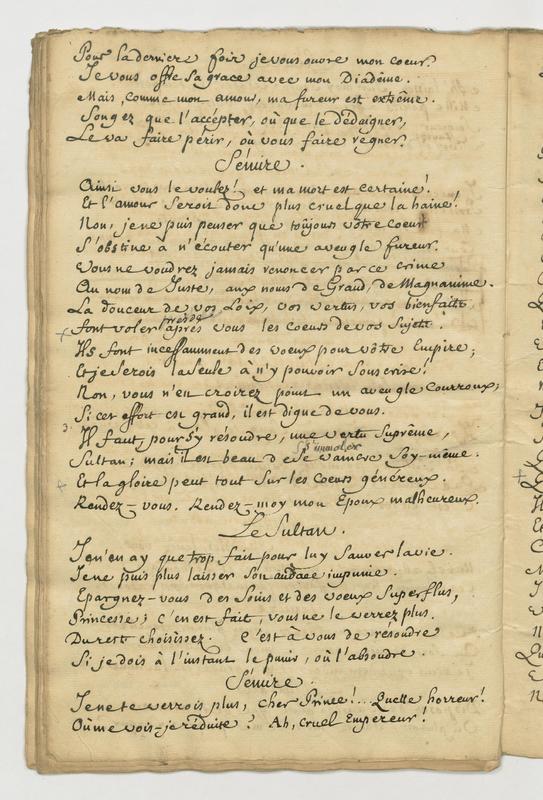 Pour la derniere foir je vous ouvre mon coeur.
Je vous offre sa grace avec mon Diadême.
Mais, comme mon amour, ma fureur est extrême.
Songez que l'accépter, où que le dédaigner,
Le va faire périr, où vous faire regner.
Sémire.
Ainsi vous le voulez! et ma mort est certaine!
Et l'amour seroit donc plus cruel que la haine!
Non, je ne puis penser que toûjours vôtre coeur
S'obstine à n'écouter qu'une aveugle fureur.
Vous ne voudrez jamais renoncer par ce crime
Au nom de Juste, aux noms de Grand, de Magnanime.
La douceur de vos Loix, vos vertus, vos bienfaits
font voler après vous les coeurs de vos Sujets.
Ils font incessamment des voeux pour vôtre Empire;
Et je serois la seule à n'y pouvoir souscrire!
Non, vous n'en croirez point un aveugle Courroux;
Si cet effort est grand, il est digne de vous.
3. Il faut, pour s'y résoudre, une vertu Suprême,
s'immoler
Sultan; mais il est beau de se vaincre Soy-même.
Et la gloire peut tout Sur les Coeurs généreux.
Rendez-vous. Rendez-moy mon Epoux malheureux.
Le Sultan.
Je n'en ay que trop fait pour luy Sauver la vie.
Je ne puis plus laisser Son audace impunie.
Epargnez-vous des Soins et des voeux Superflus,
Princesse; C'en est fait, vous ne le verrez plus.
Du reste choisissez. C'est à vous de résoudre
Si je dois à l'instant le punir, où l'absoudre.
Sémire.
Je ne te verrois plus, cher Prince!... Quelle horreur!
Où me vois-je réduite? Ah, Cruel Empereur!